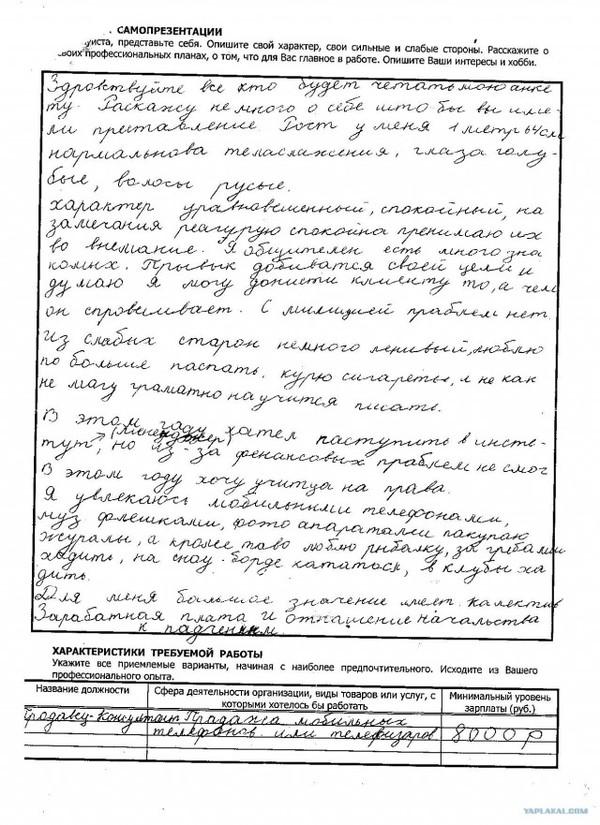 САМОПРЕЗЕНТАЦИИ
представьте себя. Опишите свой характер, свои сильные и слабые стороны. Расскажите о
своих профессиональных планах, о том, что для Вас главное в работе. Опишите Ваши интересы и хобби.
Здравствуйте все кто будет четать мою анке
ту. Раскажу немного о себе што бы вы име-
ли приставление. Рост у меня 1 метр 64 см
нармальнова теласлажения, глаза голу-
бые, волосы русые.
характер уравновешенный, спокойный, на
замечания реагурую спокойна пренимаю их
во внемание. Я общителен есть много зна
комых. Прывык добиватся своей цели и
думаю я могу донисти клиенту то, а чем
он спрашивает. С милицией праблем нет.
Из слабых старон немного ленивый, люблю
по больше паспать. курю сигареты, и не как
не магу граматно научится писать.
В этом гаду хател паступить в инсте-
тут, (менеджер) но из-за фенансовых праблем не смог
В этом году хочу учитца на права.
Я увлекаюсь мобильными телефонами,
муз флешками, фото апаратами пакупаю
журалы, а кроме таво люблю рыбалку, за грибами
хадить, на сноу-борде кататься, в клубы ха
дить.
Для меня большое значение имеет калектив
Зарабатная плата и отнашение начальства
к падченным.
ХАРАКТЕРИСТИКИ ТРЕБУЕМОЙ РАБОТЫ
Укажите все приемлемые варианты, начиная с наиболее предпочтительного. Исходите из Вашего
профессионального опыта.
Название должности Сфера деятельности организации, виды товаров или услуг, с которыми хотелось бы работать Минимальный уровень зарплаты (руб.)
Продавец-Консультант Прадажа мобильных
телефонов или телевизаров 8000 р
YAPLAKAL.COM